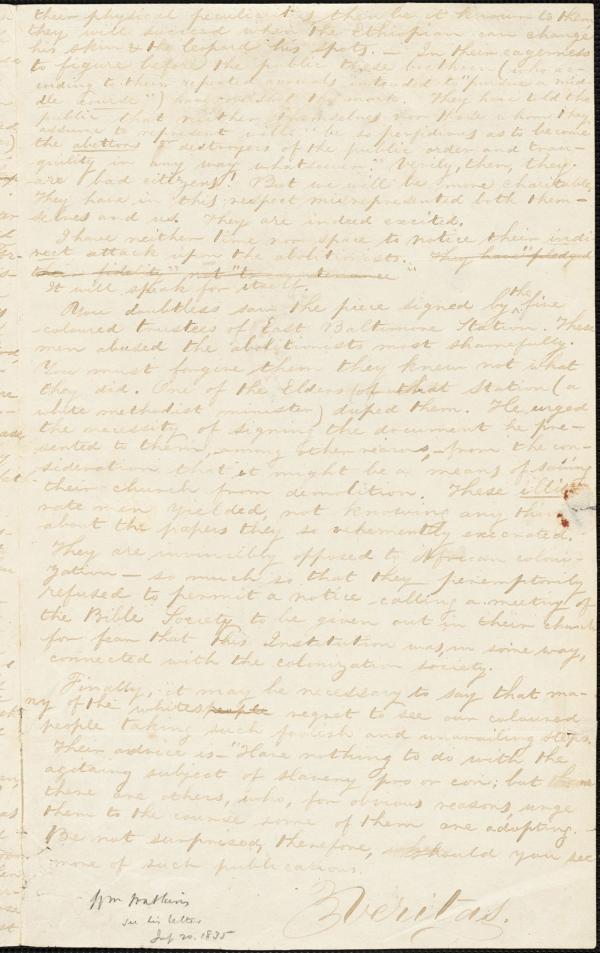 their physical peculiarities then be it known to them
they will succeed when the Ethiopian can change
his skin & the leopard his spots. — In their eagerness
to figure before the public these brethren (who
their repeated avowals intended to "pursue a mid-
dle course") have overshot the mark. They have told the
public that neither themselves nor those whom they
assume to represent will "be so perfidious as to become
the abettors & destroyers of the public order and tran-
quility in any way whatsoever." Verily, then, they
are bad citizens! But we will be more charitable,
They have in this respect misrepresented both them-
selves and us. They are indeed excited.
I have neither time nor space to notice their indi
rect attack upon the abolitionists. They have "pledged
their fidelity" not "to
It will speak for itself.
You doubtless saw the piece signed by the five
coloured trustees of East Baltimore Station. These
men abused the abolitionists most shamefully.
You must forgive them they knew not what
they did. One of the Elders of that Station (a
white methodist minister) duped them. He urged
the necessity of signing the document he pre-
sented to them, among other reasons, from the con-
sideration that it might be a means of saving
their church from demolition. These illite
rate men yielded, not knowing any thing
about the papers they so vehemently execrated.
They are invincibly opposed to African coloni-
zation — so much so that they peremptorily
refused to permit a notice calling a meeting of
the Bible Society to be given out in their church
for fear that this Institution was, in some way,
connected with the colonization society.
Finally, it may be necessary to say that ma-
ny of the whites people regret to see our coloured
people taking such foolish and unavailing steps.
Their advice is — "Have nothing to do with the
agitating subject of slavery pro or con; but
there are others, who, for obvious reasons, urge
them to the course some of them are adopting. —
Be not surprised, therefore, should you see
more of such publications.
Veritas.
Wm Watkins
see his letter
Sep 20. 1835